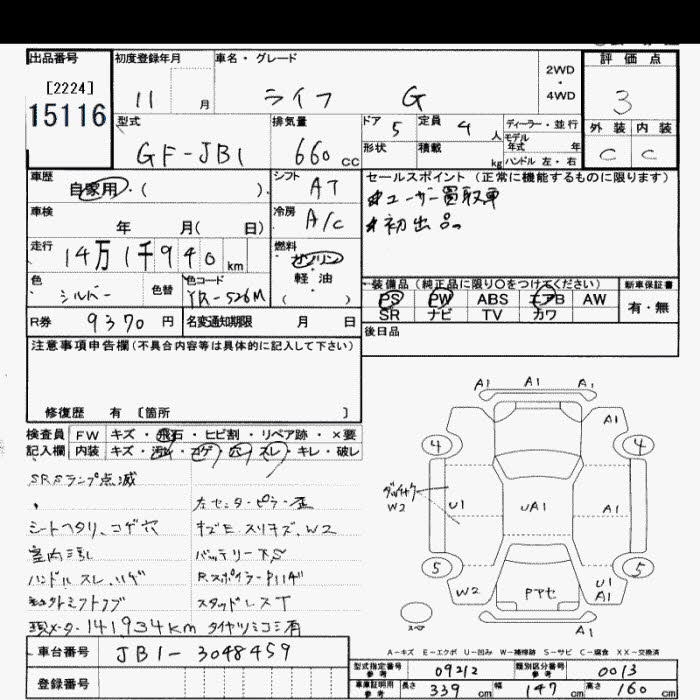 出品番号
[2224]
15116
初度登録年月
11 月
車名・グレード
ライフ G
2WD
・
4WD
評価点
3
外装 内装
C C
型式
GF-JB1
排気量
660 CC
ドア 5
定員 4 人
形状
積載 kg
ディーラー・並行
モデル
年式 年
ハンドル 左・右
車歴
自家用・( )
シフト
AT
セールスポイント(正常に機能するものに限ります)
*ユーザー買取車
*初出品。
車検
年 月( 日)
冷房
A/C
走行
14万1千940 km
燃料
ガソリン
軽油
( )
色
シルバー
色替
色コード
YR-526M
装備品(純正品に限り〇をつけてください)
PS PW ABS エアB AW
SR ナビ TV カワ
新車保証書
有・無
R券 9370 円
名変通知期限 月 日
後日品
注意事項申告欄(不具合内容等は具体的に記入して下さい)
修復歴 有 [箇所 ]
検査員
記入欄
FW キズ・飛石・ヒビ割・リペア跡・×要
内装 キズ・汚れ・コゲ・穴・スレ・キレ・破レ
SRSランプ点滅
左センターピラー歪
シートヘタリ、コゲ穴
キズE スリキズ、W2
室内汚れ
バッテリー不S
ハンドルスレ、ハゲ
スタッドレスT
現メーター141934km タイヤツミコミ有
A1 A1 A1
A1
4 4
W2
U1 UA1 A1
5 5
W2
U1
A1
スペア
A1
A-キズ E-エクボ U-凹み W-補修跡 S-サビ C-腐食 XX-交換済
車台番号
JB1-3048459
登録番号
型式指定番号
参考
09212
類別区分番号
参考
0013
車庫証明用
参考
長さ 339 cm 幅 147 cm 高さ 160 cm